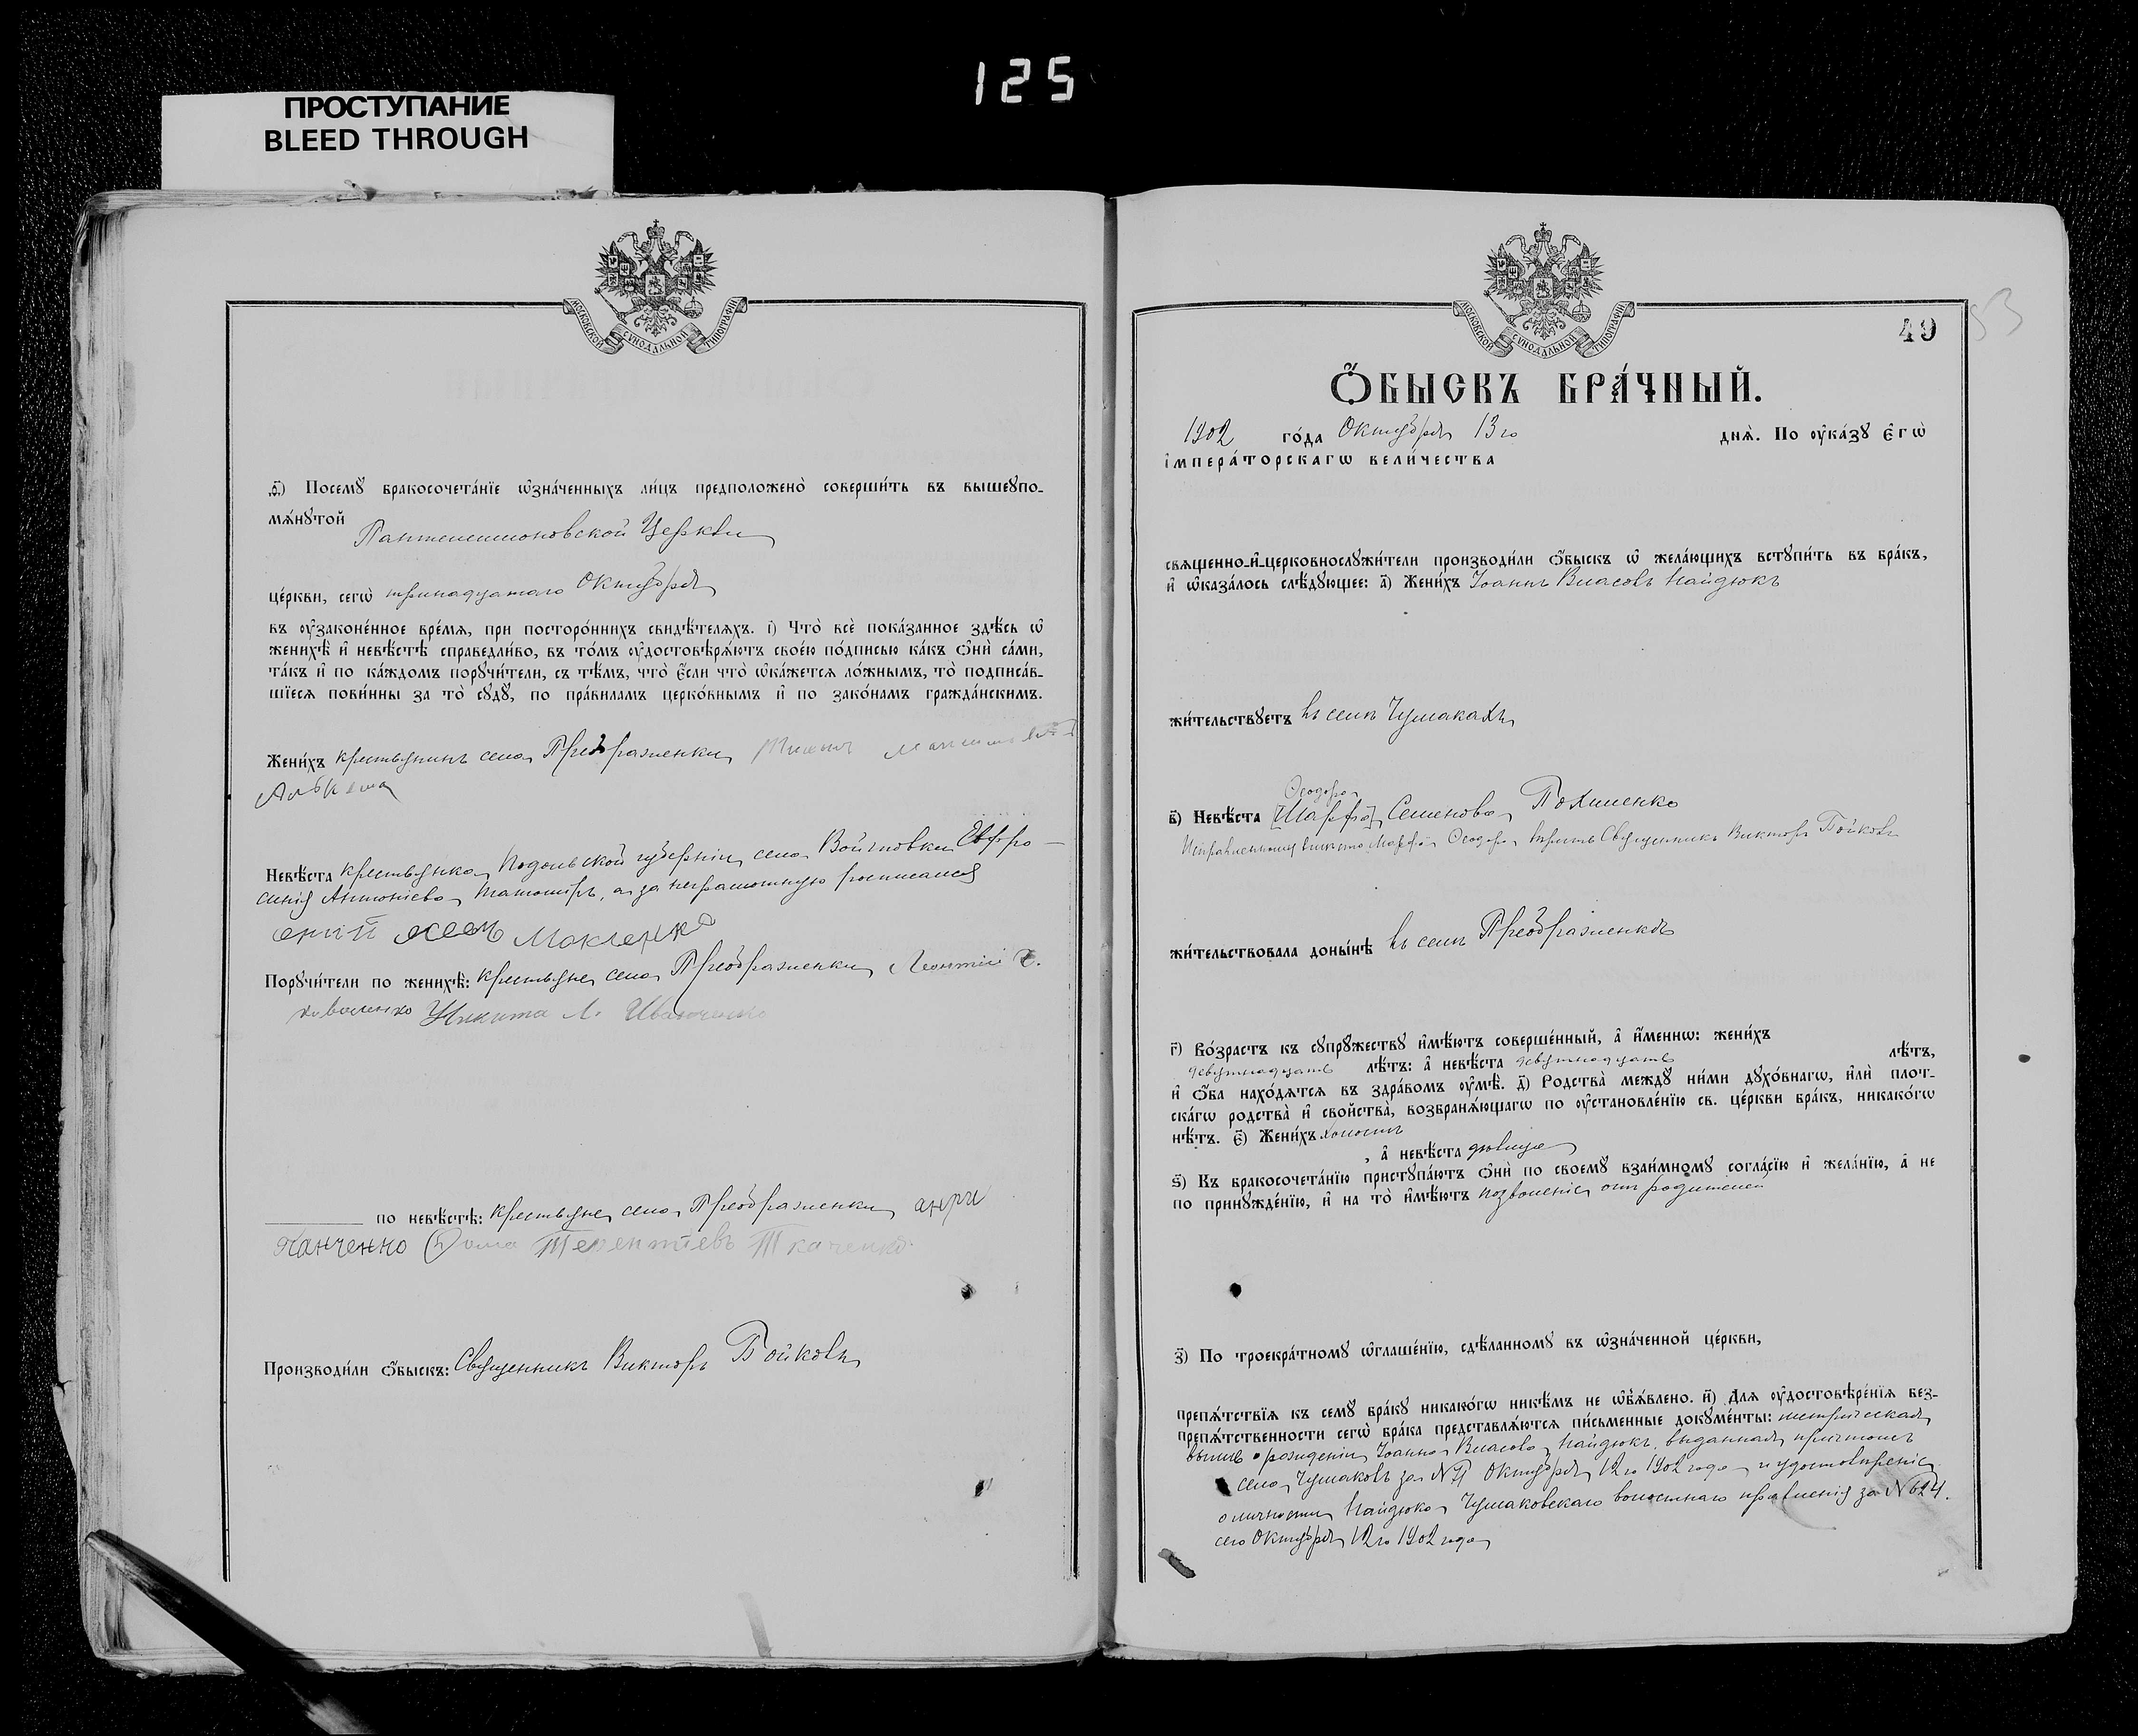 125
ПРОСТУПАНИЕ
BLEED THROUGH
МОСКОВСКОЙ СѴНОДАЛЬНОЙ ТИПОГРАФІИ
ѳ҃) Посемꙋ̀ бракосочета́нїе ѡ҆зна́ченныхъ ли́цъ предположено̀ соверши́ть въ вышеꙋпо-
мѧ́нꙋтой
Пантелеимоновской Церкви
це́ркви, сегѡ̀ тринадцатаго Октября
въ ᲂу҆законе́нное вре́мѧ, при посторо́ннихъ свидѣ́телѧхъ. і҃) Что̀ всѐ пока́занное здѣ́сь ѡ҆
женихѣ̀ и҆ невѣ́стѣ справедли́во, въ то́мъ ᲂу҆достовѣрѧ́ютъ свое́ю по́дписью ка́къ ѻ҆нѝ са́ми,
та́къ и҆ по ка́ждомъ порꙋчи́тели, съ тѣ́мъ, что̀ є҆́сли что̀ ѡ҆ка́жетсѧ ло́жнымъ, то̀ подписа́в-
шїесѧ пови́нны за то̀ сꙋдꙋ̀, по пра́виламъ церко́внымъ и҆ по зако́намъ гражда́нскимъ.
Жени́хъ крестьянинъ села Преображенки
Невѣ́ста крестьянка Подольской губерніи села Войтовки Евфро-
синія Антоніева, а за неграмотную росписался
Порꙋчи́тели по женихѣ̀: крестьяне села Преображенки Леонтій
Никита Л. Иванченко
по невѣ́стѣ: крестьяне села Преображенки
Панченко Фома Терентіевъ Ткаченко
Производи́ли ѻ҆́быскъ: Священникъ Викторъ Бойковъ
МОСКОВСКОЙ СѴНОДАЛЬНОЙ ТИПОГРАФІИ
49
53
Ѻ҆́БЫСКЪ БРА́ЧНЫЙ.
1902 го́да Октября 13го днѧ̀. По ᲂу҆ка́зꙋ є҆гѡ̀
і҆мпера́торскагѡ вели́чества
свѧщенно-и҆-церковнослꙋжи́тели производи́ли ѻ҆́быскъ ѡ҆ жела́ющихъ встꙋпи́ть въ бра́къ,
и҆ ѡ҆каза́лось слѣ́дꙋющее: а҃) Жени́хъ Іоаннъ Власовъ Найдюкъ
жи́тельствꙋетъ въ селѣ Чумакахъ
Ѳеодора
в҃) Невѣ́ста [Марфа] Семенова Похиленко
Исправленному вмѣсто Марфа Ѳеодора вѣрить Священникъ Викторъ Бойковъ
жи́тельствовала доны́нѣ въ селѣ Преображенкѣ
г҃) Во́зрастъ къ сꙋпрꙋ́жествꙋ и҆мѣ́ютъ соверше́нный, а҆ и҆́меннѡ: жени́хъ
девятнадцать лѣ́тъ: а҆ невѣ́ста девятнадцать лѣ́тъ,
и҆ ѻ҆́ба нахо́дѧтсѧ въ здра́вомъ ᲂу҆мѣ̀. д҃) Родства̀ междꙋ̀ ни́ми дꙋхо́внагѡ, и҆лѝ плот-
ска́гѡ родства̀ и҆ сво́йства̀, возбранѧ́ющагѡ по ᲂу҆становле́нїю св. це́ркви бра́къ, никако́гѡ
нѣ́тъ. є҃) Жени́хъ холостъ
, а҆ невѣ́ста дѣвица
ѕ҃) Къ бракосочета́нїю пристꙋпа́ютъ ѻ҆нѝ по своемꙋ̀ взаи́мномꙋ согла́сїю и҆ жела́нїю, а҆ не
по принꙋжде́нїю, и҆ на то̀ и҆мѣ́ютъ позволеніе отъ родителей
з҃) По троекра́тномꙋ ѡ҆глаше́нїю, сдѣ́ланномꙋ въ ѡ҆зна́ченной це́ркви,
препѧ́тствїѧ къ семꙋ̀ бра́кꙋ никако́гѡ никѣ́мъ не ѡ҆б̾ѧ́влено. и҃) Длѧ ᲂу҆достовѣре́нїѧ без-
препѧ́тственности сегѡ̀ бра́ка представлѧ́ютсѧ пи́сьменные докꙋме́нты: метрическая
выпись о рожденіи Іоанна Власова Найдюкъ, выданная причтомъ
села Чумаковъ за № Октября 12го 1902 года и удостовѣреніе
о личности Найдюка Чумаковскаго волостнаго правленія за № 624.
сего Октября 12го 1902 года